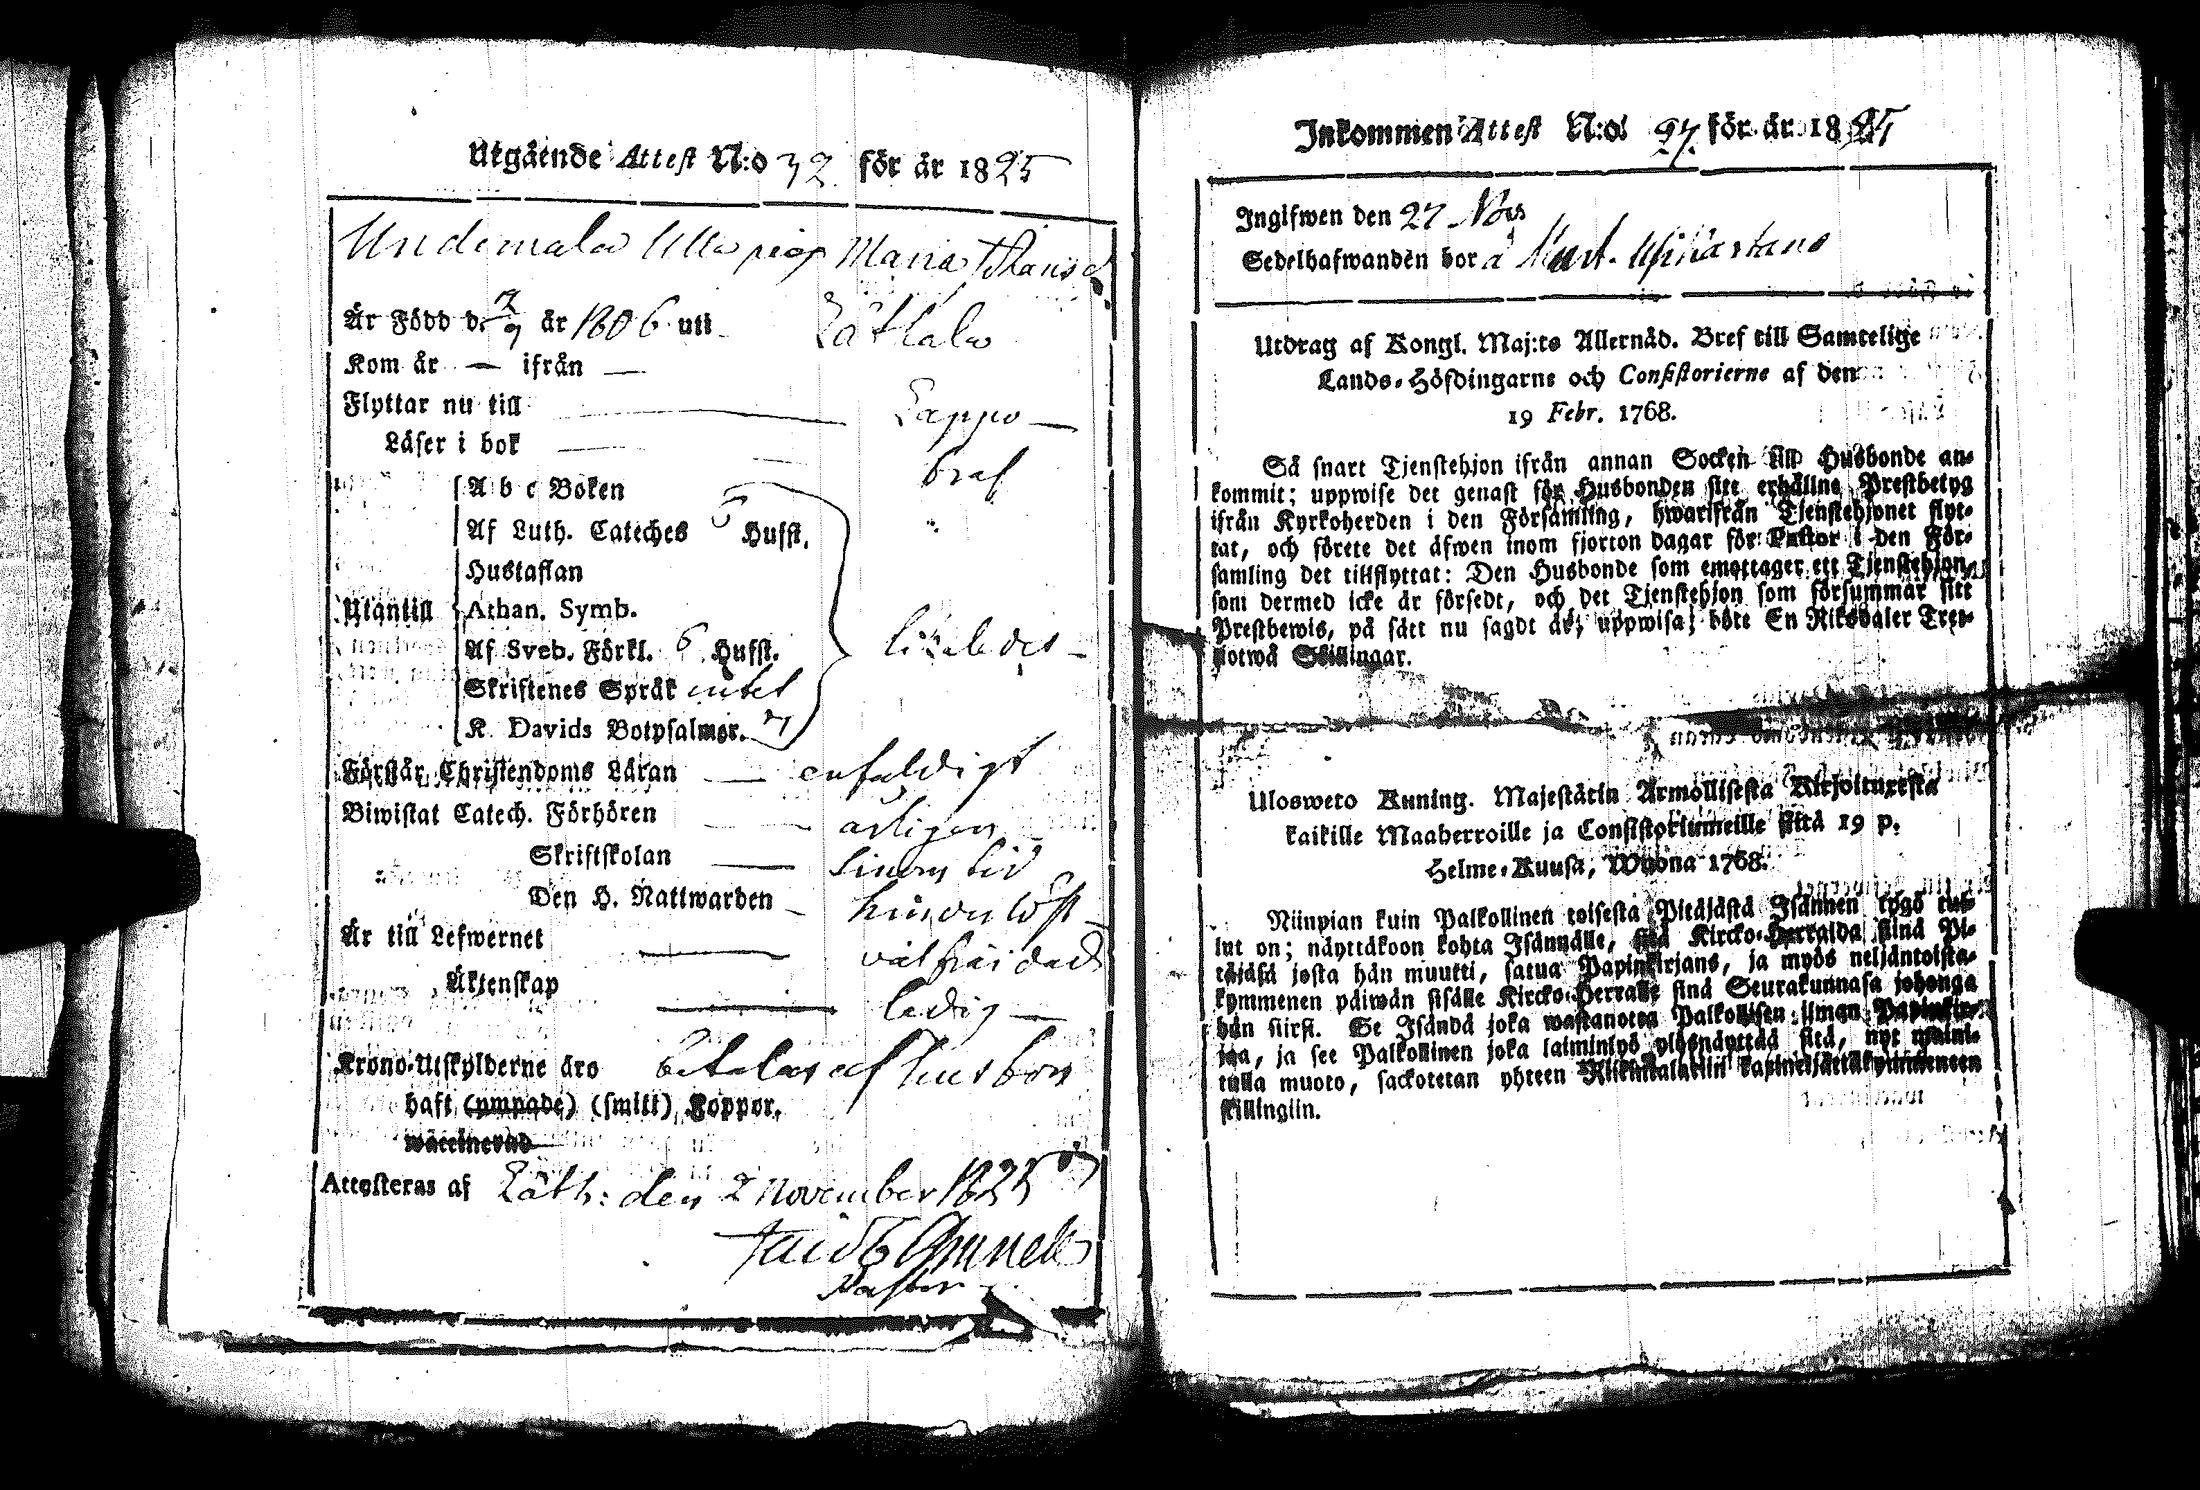 Utgående Attest N:o 32 för år 1825
Undemala Ulla pig. Maria
Är Född d. 7/9 år 1806 uti Låthala
Kom år — ifrån —
Flyttar nu till Lappo —
Läser i bok braf
A b c Boken
Af Luth. Cateches 5 Hufst. "
Hustaflan
Utantill Athan. Symb.
Af Sveb. Förkl. 6 Hufst. likaledes —
Skriftenes Språk intet
K. Davids Botpsalmer. 7
Förstår Christendoms Läran — enfaldigt
Biwistat Catech. Förhören — årligen
Skriftskolan — sinom tid
Den H. Nattwarden — hinderlöst
Är till Lefwernet — välfräjdad
Äktenskap — ledig —
Krono-Utskylderne äro betalas af husbon
haft (ympade) (smitt) Koppor.
waccinerad
Attesteras af Läth: den 2 November 1825
Jacob
Pastor
Inkommen Attest N:o 97 för år 1825
Ingifwen den 27 Nov
Sedelhafwanden bor å
Utdrag af Kongl. Maj:ts Allernåd. Bref till Samtelige
Lands-Höfdingarne och Consistorierne af den
19 Febr. 1768.
Så snart Tjenstehjon ifrån annan Socken till Husbonde an-
kommit; uppwise det genast för Husbonden sitt erhållne Prestbetyg
ifrån Kyrkoherden i den Församling, hwarifrån Tjenstehjonet flyt-
tat, och förete det äfwen inom fjorton dagar för Pastor i den För-
samling det tillflyttat: Den Husbonde som emottager ett Tjenstehjon,
som dermed icke är försedt, och det Tjenstehjon som försummar sitt
Prestbewis, på sätt nu sagdt är, uppwisa; böte En Riksdaler Tret-
totwå Skillingar.
Ulosweto Kuning. Majestätin Armollisesta Kirjoituxesta
kaikille Maaherroille ja Consistoriumeille siitä 19 p.
Helme-Kuusa, Wuona 1768.
Niinpian kuin Palkollinen toisesta Pitäjästä Isännen tygö tul-
lut on; näyttäkoon kohta Isännälle, sitä Kircko-Herralda siinä Pi-
täjäsä josta hän muutti, satua Papinkirjans, ja myös neljäntoista-
kymmenen päiwän sisälle Kircko-Herralle siinä Seurakunnasa johonga
hän siirsi. Se Isändä joka wastanottaa Palkollisen ilman Papinkir-
jaa, ja see Palkollinen joka laiminlyö ylösnäyttää sitä, nyt maini-
tulla muoto, sackotetan yhteen Riikintalariin kaxineljättäkymmeneen
skillingiin.